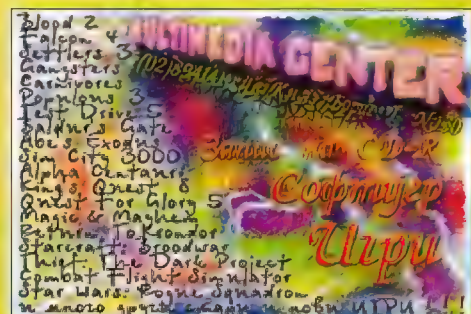 Blood 2
Falcon 4
Settlers 3
Gangsters
Carnivores
Populous 3
Test Drive 5
Baldur's Gate
Abe's Exodus
Sim City 3000
Alpha Centauri
King's Quest 8
Quest For Glory 5
Magic & Mayhem
Return To Krondor
Starcraft: Broodwar
Thief: The Dark Project
Combat Flight Simulator
Star Wars: Rogue Squadron
и много други стари и нови ИГРИ !!!
MULTIMEDIA CENTER
Запис на CD-R
Софтуер
Игри